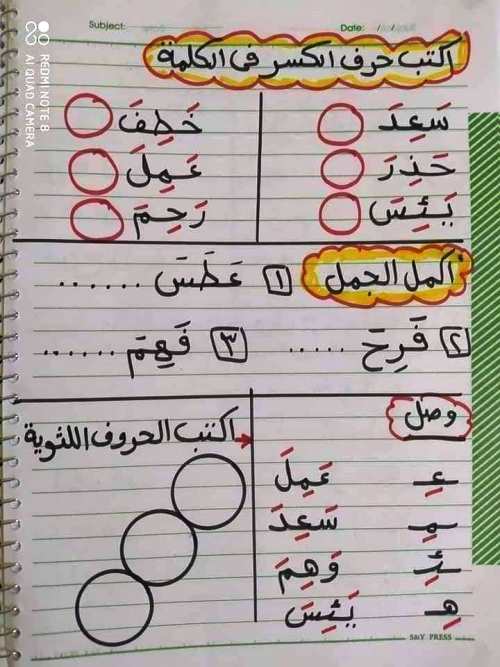 Subject:
Date:
REDMI NOTE 8
AI QUAD CAMERA
اكتب حرف الكسر فى الكلمة
سَعِدَ خَطِفَ
حَذِرَ عَمِلَ
يَئِسَ رَحِمَ
أكمل الجمل ١ عَطَسَ ......
٢ فَرِحَ ..... ٣ فَهِمَ ......
وصل
عِ عَمِلَ
مِ سَعِدَ
ئِ وَهِمَ
هِ يَئِسَ
اكتب الحروف اللثوية
S&Y PRESS